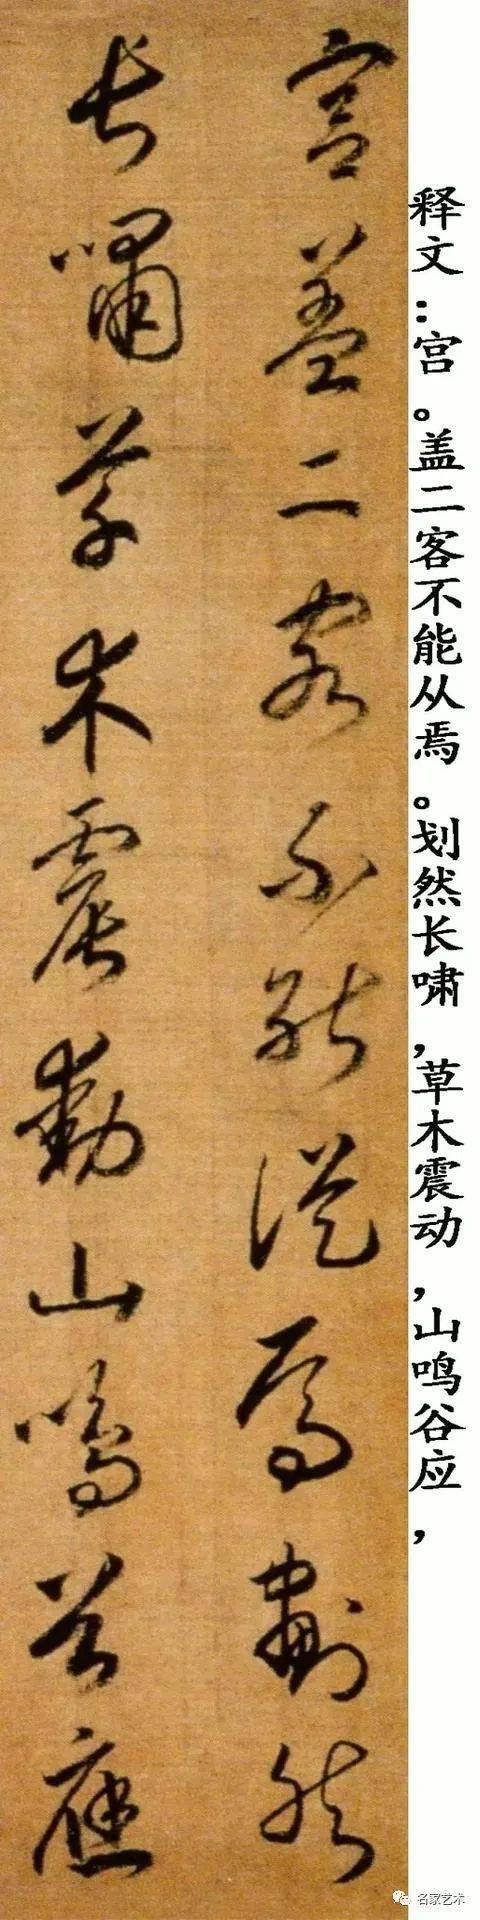 宫盖二客不能從焉劃然
长啸草木震動山鳴谷應
释文：宫。盖二客不能从焉。划然长啸，草木震动，山鸣谷应，
名家艺术